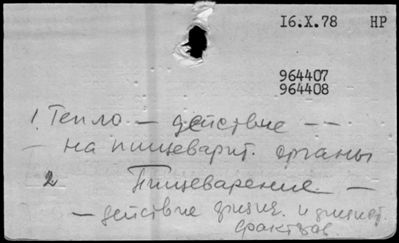 16.X.78 НР
964407
964408
1. Тепло — действие --
— на пищеварит. органы
2 Пищеварение —
— действие физич. и химич.
факторов